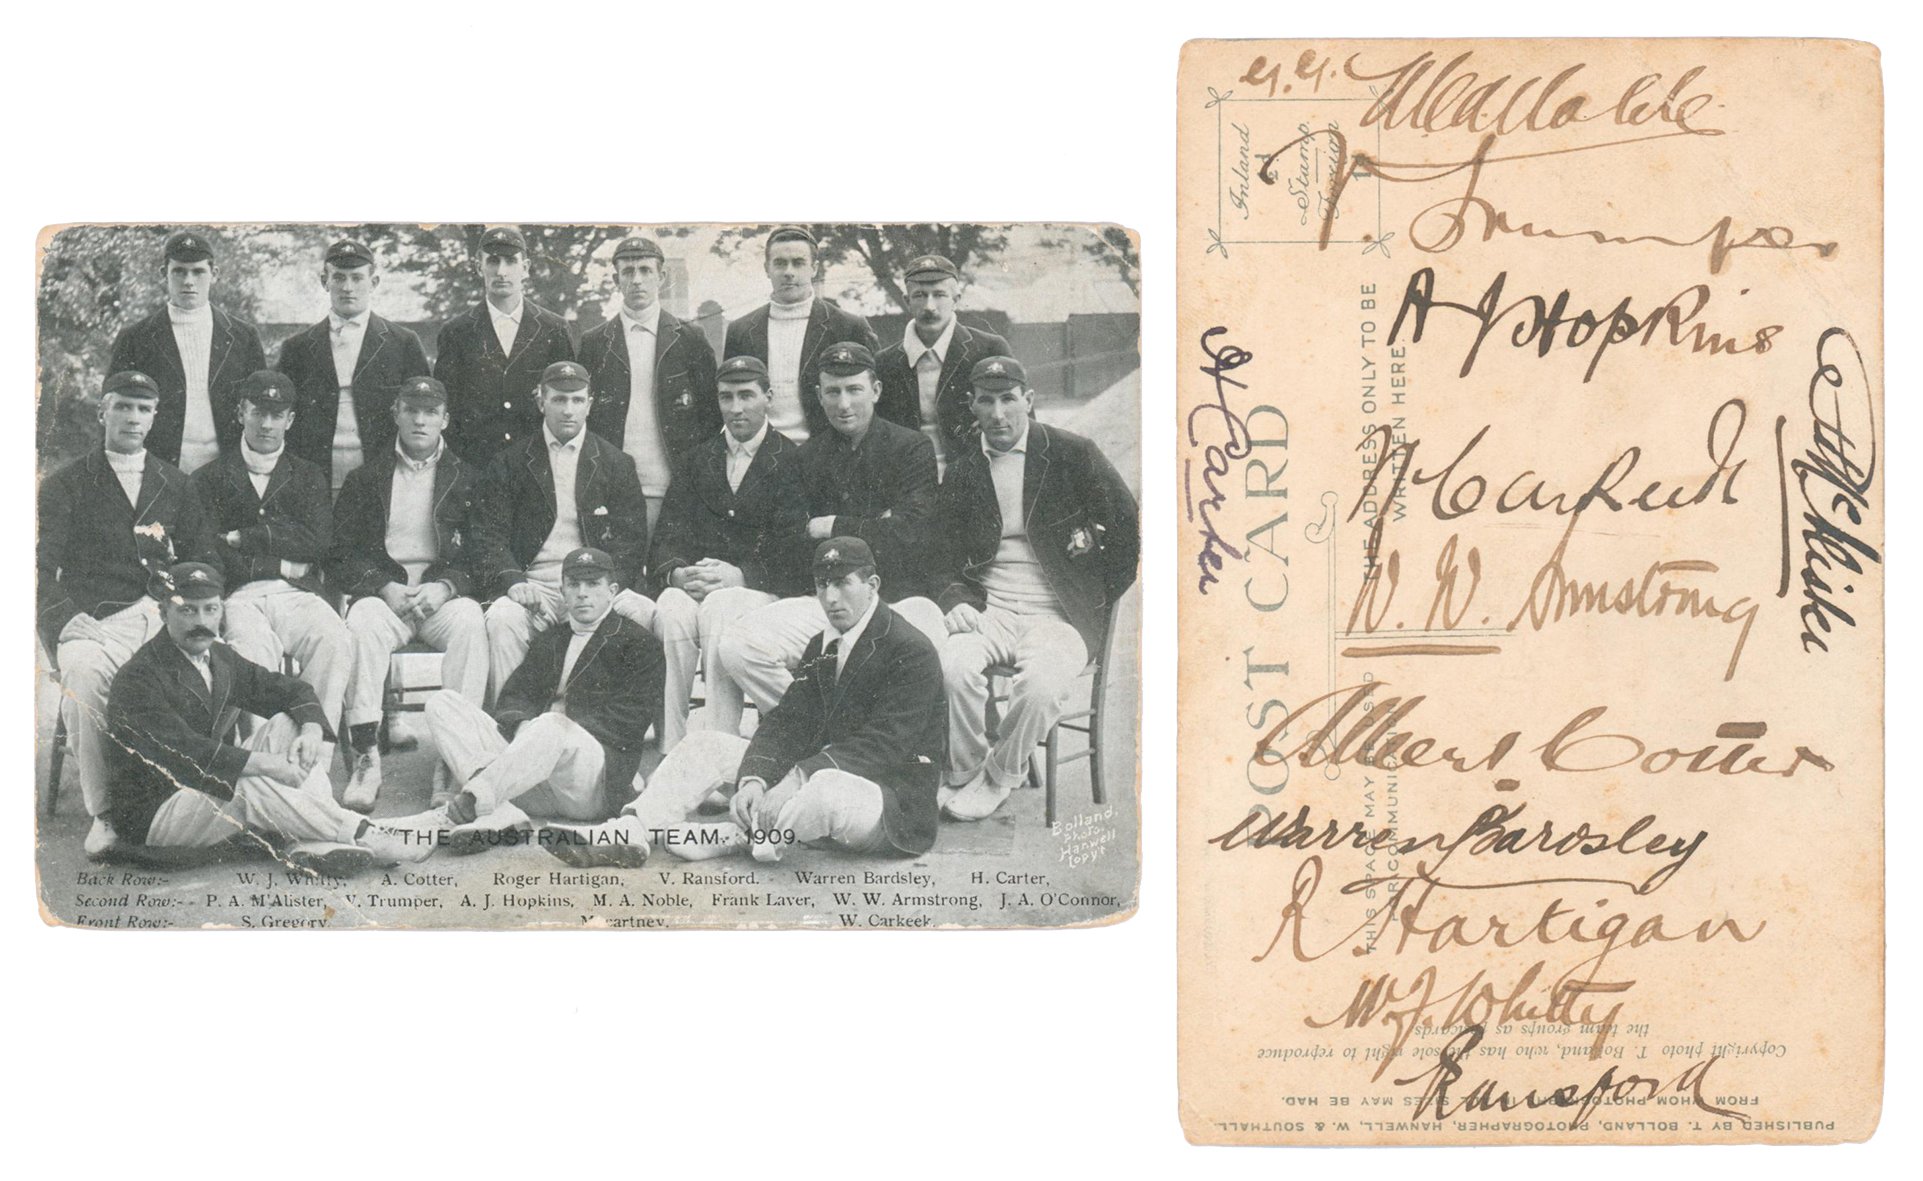 THE AUSTRALIAN TEAM. 1909.
Bolland.
Photo.
Hanwell
Copyt
Back Row:- W. J. Whitty, A. Cotter, Roger Hartigan, V. Ransford. Warren Bardsley, H. Carter,
Second Row:- P. A. M'Alister, V. Trumper, A. J. Hopkins, M. A. Noble, Frank Laver, W. W. Armstrong, J. A. O'Connor,
Front Row:- S. Gregory, Macartney, W. Carkeek.
M A Noble
V. Trumper
A J Hopkins
W Carkeek
W. W. Armstrong
Albert Cotter
Warren Bardsley
R. Hartigan
W. J. Whitty
Ransford
H Carter
POST CARD
Inland
½d
Stamp.
Foreign
1d
THE ADDRESS ONLY TO BE
WRITTEN HERE.
THIS SPACE MAY BE USED
FOR COMMUNICATION
Copyright photo T. Bolland, who has the sole right to reproduce
the team groups as postcards
PUBLISHED BY T. BOLLAND, PHOTOGRAPHER, HANWELL, W. & SOUTHALL.
FROM WHOM PHOTOGRAPHS IN ALL SIZES MAY BE HAD.